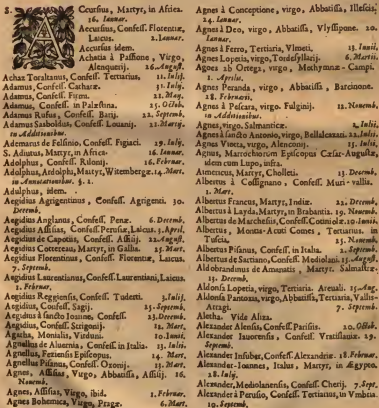 S. Accursius, Martyr, in Africa.
16. Ianuar.
Accursius, Confess. Florentiæ,
Laicus. 2. Ianuar.
Accursius idem.
Achatia à Passione, Virgo,
Alenquerij. 26. August.
Achaz Toraltanus, Confess. Tertiarius. 11. Iulij.
Adamus, Confess. Catharæ. 31. Iulij.
Adamus, Confess. Firmi. 22. Maij.
Adamus, Confess. in Palæstina. 25. Octob.
Adamus Rufus, Confess. Barij. 22. Septemb.
Adamus Sasboldus, Confess. Louanij. 22. Martij.
in Additionibus.
Ademarus de Felsinio, Confess. Figiaci. 29. Iulij.
S. Adiutus, Martyr, in Africa. 16. Ianuar.
Adolphus, Confess. Rilonij. 16. Februar.
Adolphus, Ardolphi, Martyr, Witembergæ. 14. Mart.
in Annotationibus. §. 2.
Adulphus, idem.
Aegidius Agrigentinus, Confess. Agrigenti. 30.
Decemb.
Aegidius Anglanus, Confess. Penæ. 6. Decemb.
Aegidius Assisias, Confess. Perusiæ, Laicus. 3. April.
Aegidius de Capotiis, Confess. Assisij. 22. August.
Aegidius Cotereau, Martyr, in Gallia. 25. Mart.
Aegidius Florentinus, Confess. Florentiæ, Laicus.
7. Septemb.
Aegidius Laurentianus, Confess. Laurentiani, Laicus.
1. Februar.
Aegidius Reggiensis, Confess. Tuderti. 3. Iulij.
Aegidius, Confess. Sagij. 25. Septemb.
Aegidius à sancto Ioanne, Confess. 23. Decemb.
Aegidius, Confess. Strigonij. 12. Mart.
Agatha, Monialis, Virduni. 10. Iunij.
Agnellus de Aluernia, Confess. in Italia. 13. Iulij.
Agnellus, Feziensis Episcopus. 14. Mart.
Agnellus Pisanus, Confess. Ozonij. 13. Mart.
Agnes, Assisias, Virgo, Abbatissa, Assisij. 16.
Nouemb.
Agnes, Assisias, Virgo, ibid. 1. Februar.
Agnes Bohemica, Virgo, Pragæ. 6. Mart.
Agnes à Conceptione, virgo, Abbatissa, Illescis.
24. Ianuar.
Agnes à Deo, virgo, Abbatissa, Vlyssipone. 20.
Ianuar.
Agnes à Ferro, Tertiaria, Vlmeti. 13. Iunij.
Agnes Lopetia, virgo, Tordesyllarij. 6. Martij.
Agnes ab Ortega, virgo, Methymnæ Campi.
1. Aprilis.
Agnes Peranda, virgo, Abbatissa, Barcinone.
28. Februarij.
Agnes à Pescara, virgo. Fulginij. 12. Nouemb.
in Additionibus.
Agnes, virgo, Salmanticæ. 2. Iulij.
Agnes à sancto Antonio, virgo, Bellalcazari. 22. Iulij.
Agnes Viota, virgo, Alenconij. 13. Iulij.
Agnus, Marrochorum Episcopus Cæsar-Augustæ,
idem cum Lupo, infra.
Aimericus, Martyr, Cholleti. 23. Decemb.
Albertus à Cossignano, Confess. Muri-vallis.
2. Mart.
Albertus Francus, Martyr, Indiæ. 22. Decemb.
Albertus à Layda, Martyr, in Brabantia. 19. Nouemb.
Albertus de Marchesiis, Confess. Cotiniolæ. 10. Iunij.
Albertus, Montis-Acuti Comes, Tertiarius. in
Tuscia. 5. Nouemb.
Albertus Pisanus, Confess. in Italia. 2. Septemb.
Albertus de Sartiano, Confess. Mediolani. 15. August.
Aldobrandinus de Amanatis, Martyr. Salmastræ.
13. Decemb.
Aldonsa Lopetia, virgo, Tertiaria. Areuali. 15. Aug.
Aldonsa Pantoxa, virgo, Abbatissa, Tertiaria, Vallis-
Arragi. 7. Septemb.
Aletha. Vide Aliza.
Alexander Alensis, Confess. Parisiis. 20. Octob.
Alexander Iauorensis, Confess. Vratislauiæ. 29.
Septemb.
Alexander Insuber, Confess. Alexandriæ. 18. Februar.
Alexander-Ioannes, Italus, Martyr, in Ægypto.
28. Iulij.
Alexander, Mediolanensis, Confess. Cherij. 7. Sept.
Alexander à Perusio, Confess. Tertiarius, in Vmbria.
19. Septemb.